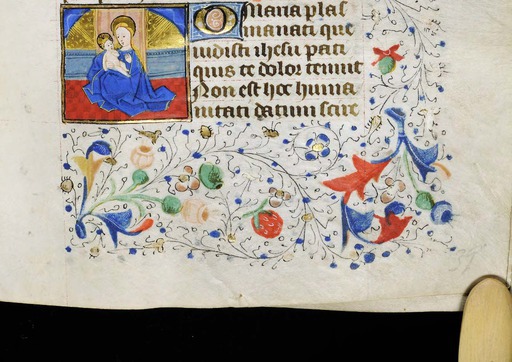 O Maria plas
manati que
uidisti ihesu pati
quis te dolor tenuit
Non est hoc huma
nitati datum scire